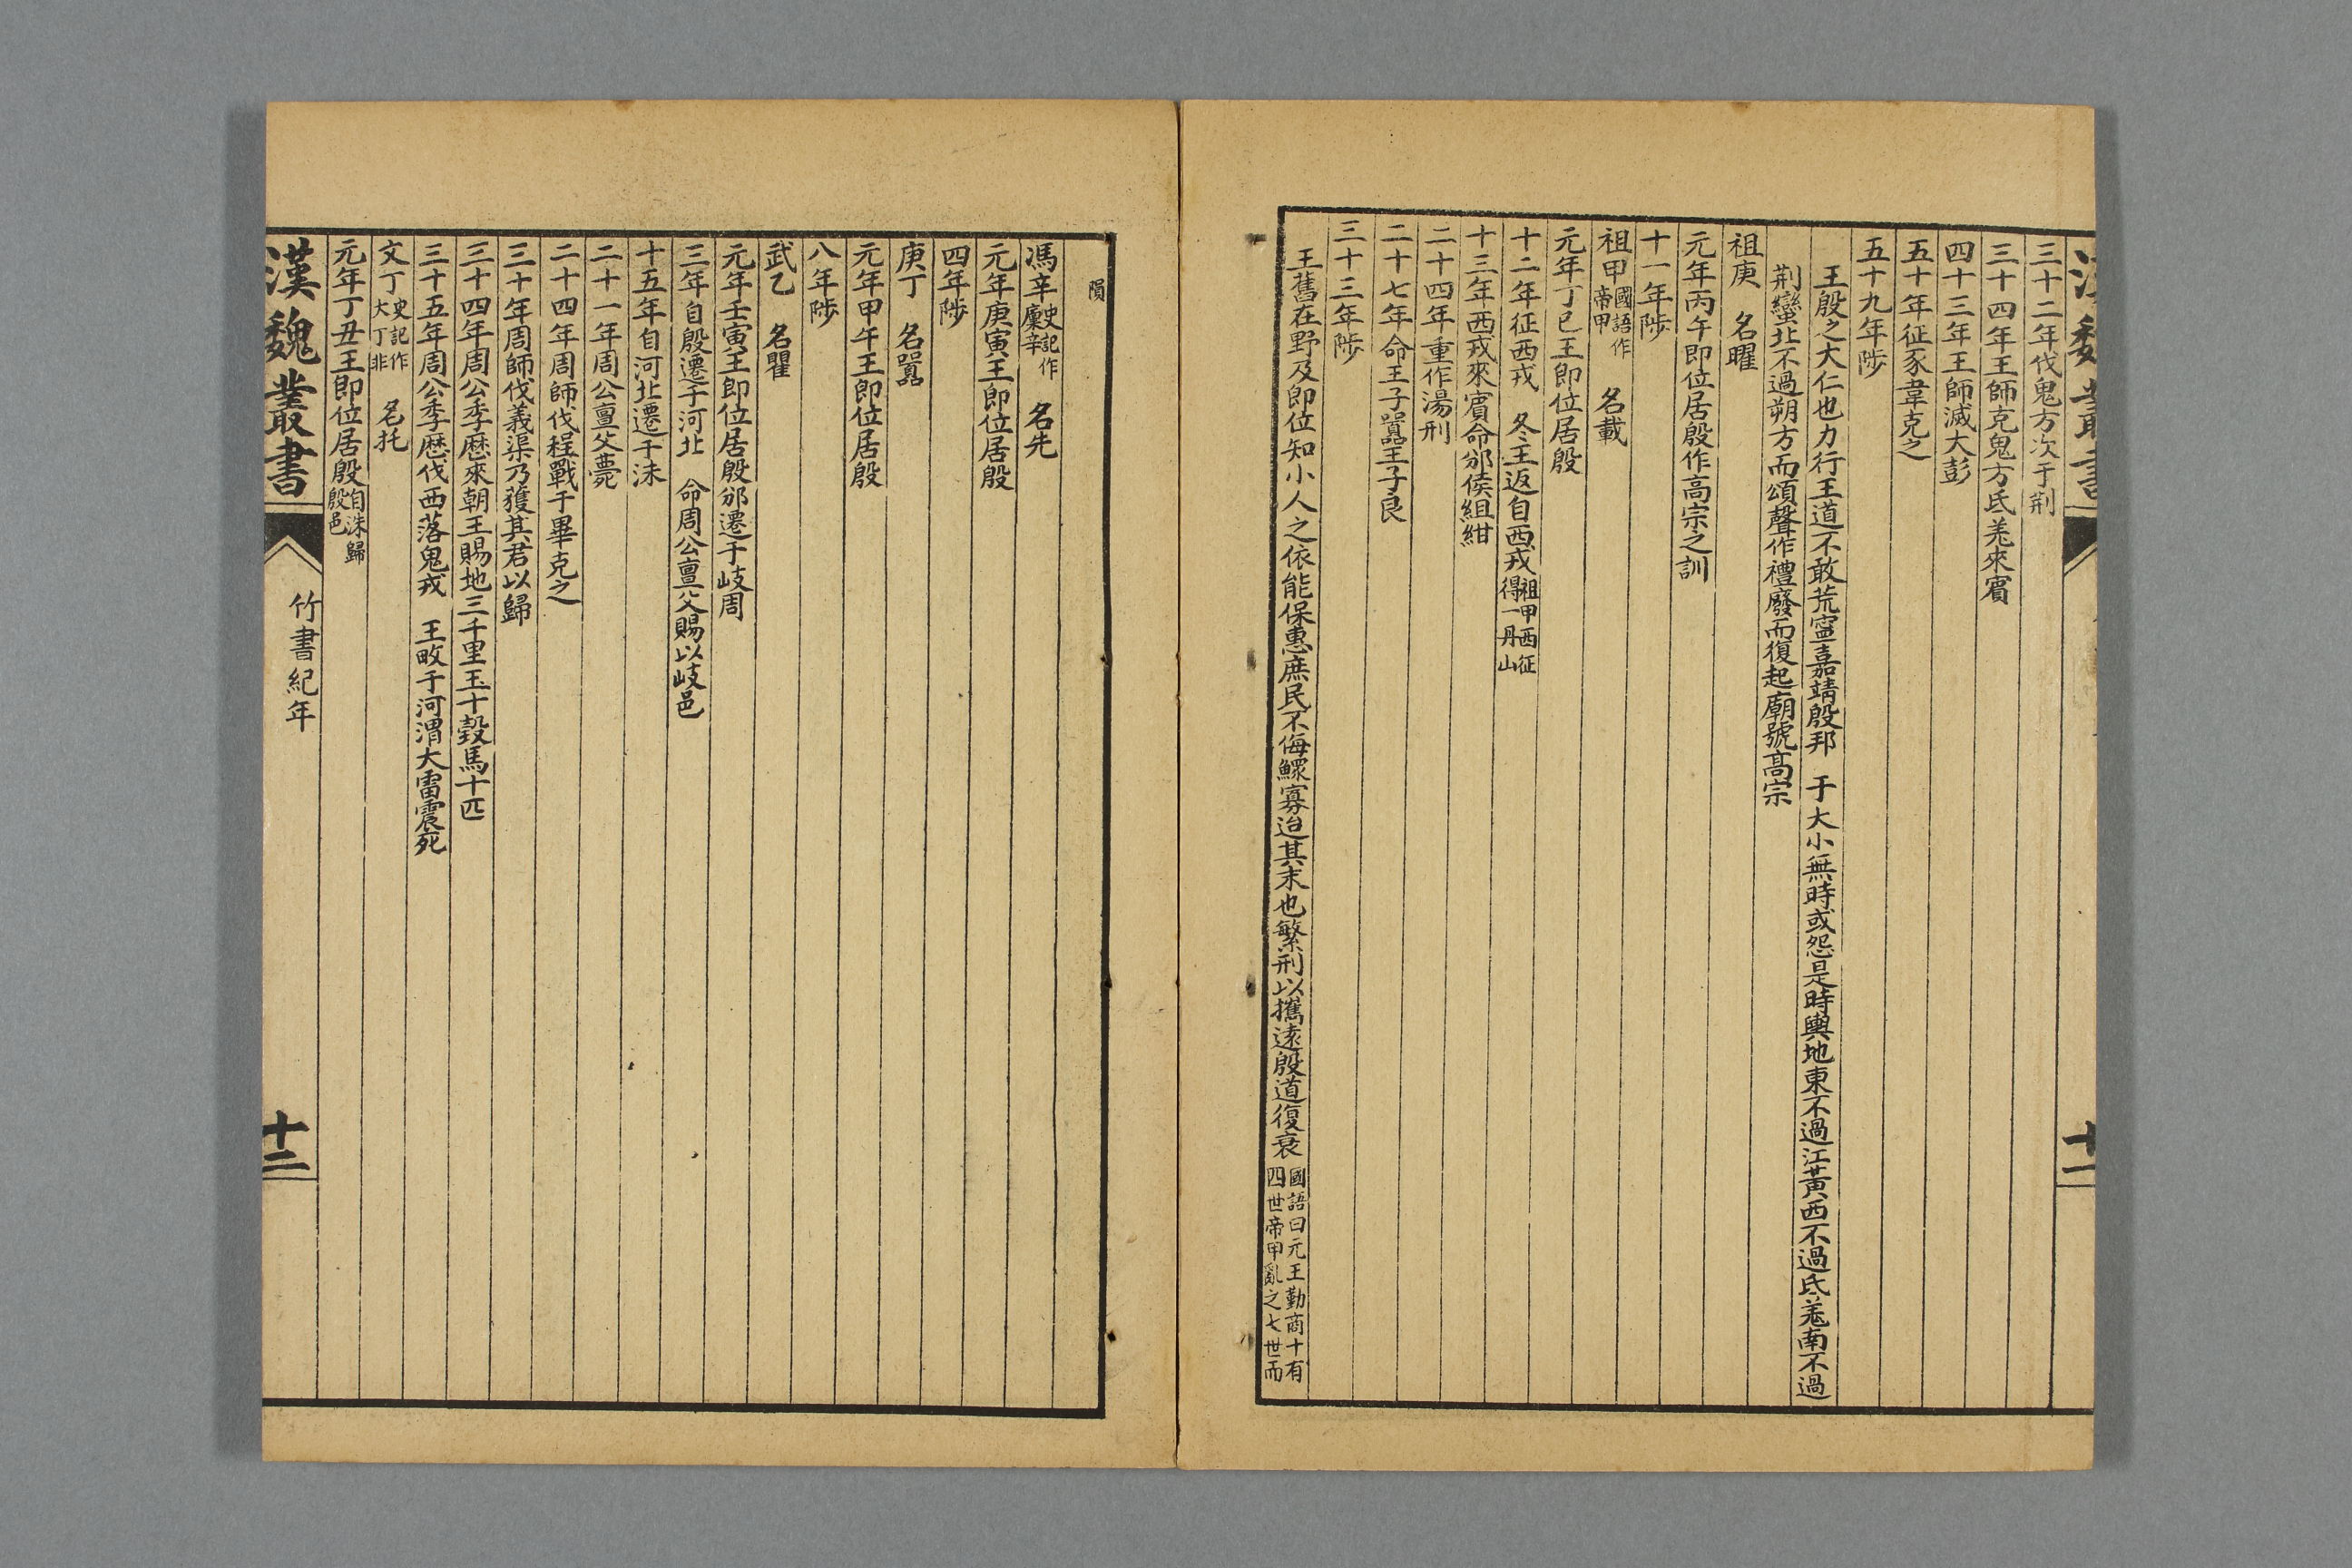 漢魏叢書
十一
三十二年伐鬼方次于荆
三十四年王師克鬼方氐羌來賓
四十三年王師滅大彭
五十年征豕韋克之
五十九年陟
王殷之大仁也力行王道不敢荒寧嘉靖殷邦　于大小無時或怨是時輿地東不過江黃西不過氐羌南不過
荆蠻北不過朔方而頌聲作禮廢而復起廟號高宗
祖庚　名曜
元年丙午即位居殷作高宗之訓
十一年陟
祖甲國語作帝甲　名載
元年丁巳王即位居殷
十二年征西戎　冬王返自西戎祖甲西征得一丹山
十三年西戎來賓命邠侯組紺
二十四年重作湯刑
二十七年命王子囂王子良
三十三年陟
王舊在野及即位知小人之依能保惠庶民不侮鰥寡迨其末也繁刑以攜遠殷道復衰國語曰元王勤商十有四世帝甲亂之七世而
隕
馮辛史記作廩辛　名先
元年庚寅王即位居殷
四年陟
庚丁　名囂
元年甲午王即位居殷
八年陟
武乙　名瞿
元年壬寅王即位居殷邠遷于岐周
三年自殷遷于河北　命周公亶父賜以岐邑
十五年自河北遷于沬
二十一年周公亶父薨
二十四年周師伐程戰于畢克之
三十年周師伐義渠乃獲其君以歸
三十四年周公季歷來朝王賜地三千里玉十瑴馬十匹
三十五年周公季歷伐西落鬼戎　王畋于河渭大雷震死
文丁史記作大丁非　名托
元年丁丑王即位居殷自沬歸殷邑
漢魏叢書
竹書紀年
十二